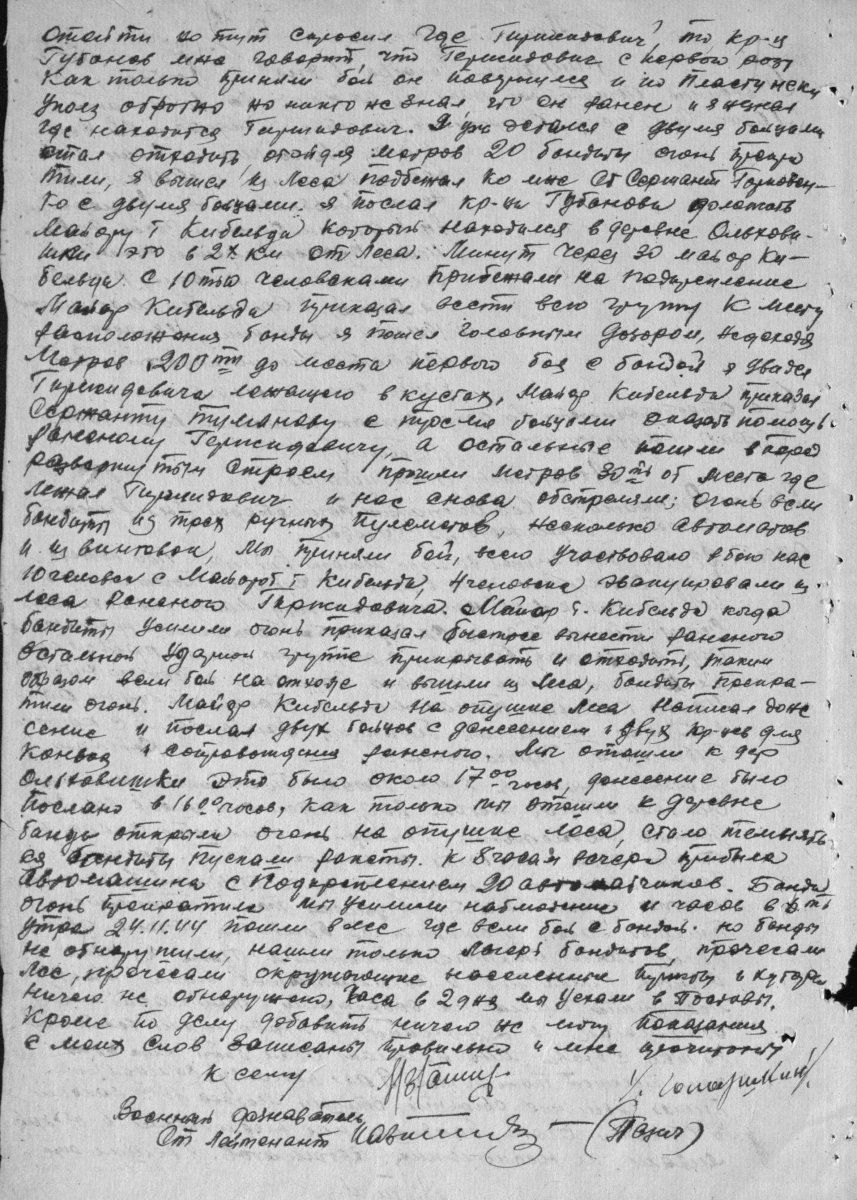 отойти но тут спросил где Гиржидович, то кр-ц
Губанов мне говорит, что Гержидович с первого разу
как только приняли бой он повернулся и по пластунски
уполз обратно но никто не знал что он ранен и я не знал
где находится Гиржидович. Я уже остался с двумя бойцами
стал отходить, отойдя метров 20 бандиты огонь прекра
тили, я вышел из леса подбежал ко мне Ст Сержант
с двумя бойцами. я послал кр-ца Губанова доложить
майору т Кибельда который находился в деревне Ольхови-
шки это в 2х км от леса. Минут через 30 майор Ки-
бельда с 10тью человеками прибежали на подкрепление
Майор Кибельда приказал вести всю группу к месту
расположения банды я пошел головным дозором, не доходя
метров 200тти до места первого боя с бандой я увидел
Гиржидовича лежащего в кустах, Майор Кибельда приказал
Сержанту Туманову с тремя бойцами оказать помощь
раненому Гержидовичу, а остальные пошли вперед
развернутым строем прошли метров 30ть от места где
лежал Гиржидович и нас снова обстреляли; огонь вели
бандиты из трех ручных пулеметов, несколько автоматов
и из винтовок, мы приняли бой, всего участвовало в бою нас
10 человек с майором т Кибельда, 4 человека эвакуировали из
леса раненого Гиржидовича. Майор т. Кибельда когда
бандиты усилили огонь приказал быстрее вынести раненого
остальной ударной группе прикрывать и отходить, таким
образом вели бой на отходе и вышли из леса, бандиты прекра-
тили огонь. Майор Кибельда на опушке леса написал доне
сение и послал двух бойцов с донесением и двух кр-цев для
конвоя и сопровождения раненого. Мы отошли к дер
Ольховишки это было около 17 00 часов, донесение было
послано в 16 00 часов, как только мы отошли к деревне
банды открыли огонь на опушке леса, стало темнеть
ся бандиты пускали ракеты. К 8 часам вечера прибыла
Автомашина с подкреплением 20 автоматчиков. Банды
огонь прекратили мы усилили наблюдение и часов в
утра 24.11.44 пошли в лес где вели бой с бандой. но банды
не обнаружили, нашли только лагерь бандитов, прочесали
лес, прочесали окружающие населенные пункты и хутора
ничего не обнаружено, Часа в 2 дня мы уехали в Поставы.
Кроме по делу добавить ничего не могу показания
с моих слов записаны правильно и мне прочитаны
к сему
Военный дознаватель
Ст лейтенант